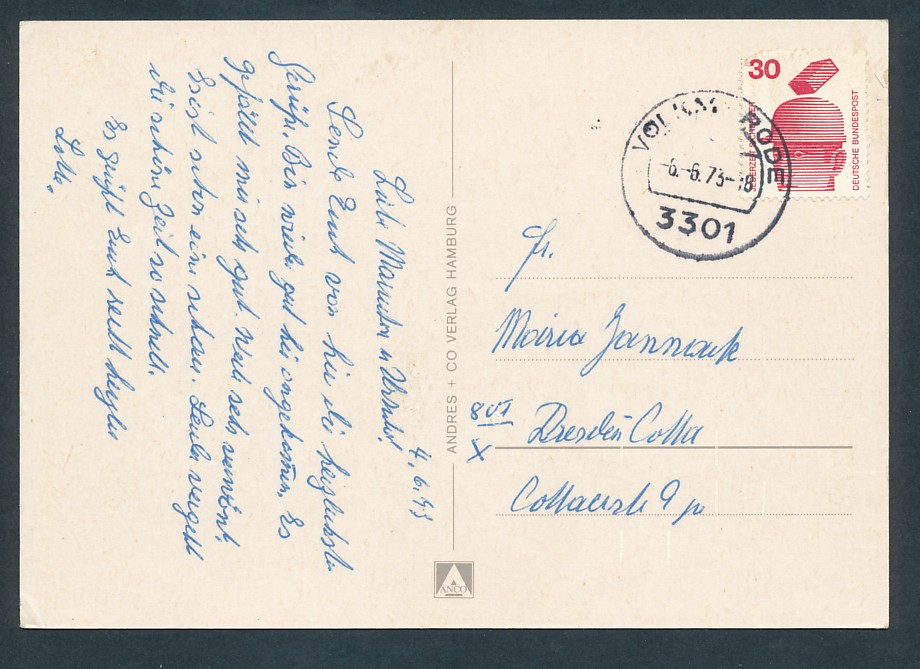 4.6.73
Liebe Mama u. Urselu!
Sende Euch von hier die herzlichsten
Grüße. Bin wieder gut hier angekommen. Es
gefällt mir sehr gut. Werde sehr verwöhnt.
Heidi schon eine schöne. Leider vergeht
die schöne Zeit so schnell.
Es grüßt Euch recht herzlich
Lotte.
ANDRES + CO VERLAG HAMBURG
ANCO
30
JEDERZEIT SICHERHEIT
DEUTSCHE BUNDESPOST
VOLKMARODE
-6.-6.73-18
3301
Fr.
Maria Jannack
801 Dresden Cotta
X
Cottaerstr 9 pr